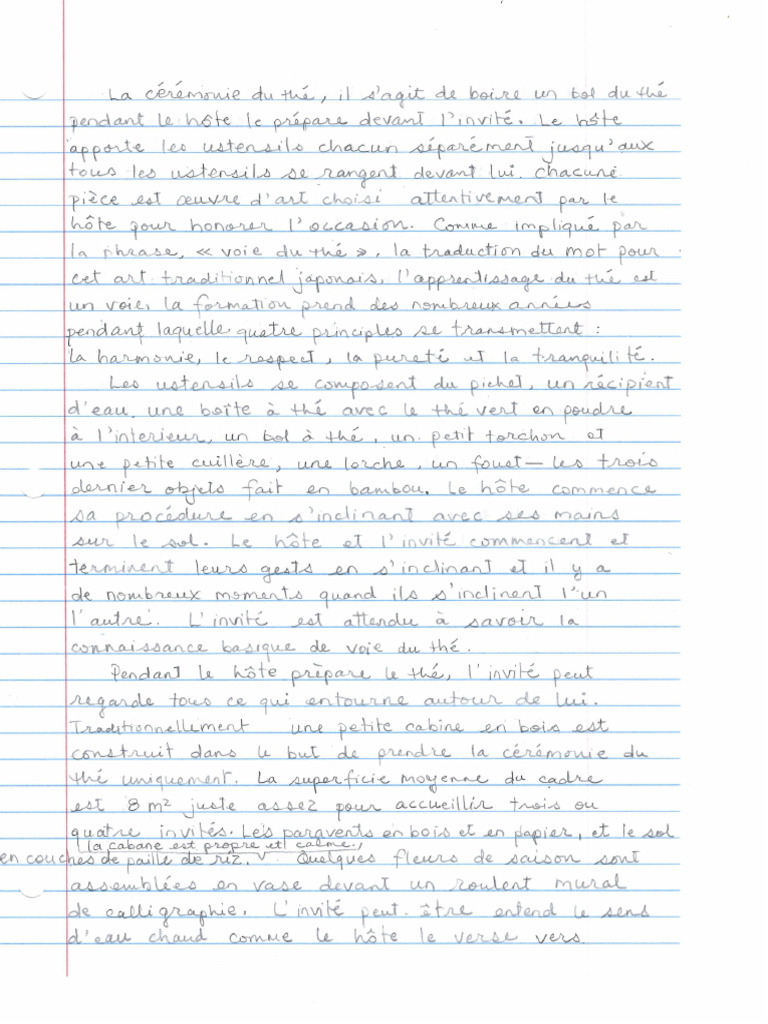 La cérémonie du thé, il s'agit de boire un bol du thé
pendant le hôte le prépare devant l'invité. Le hôte
apporte les ustensils chacun séparément jusqu'aux
tous les ustensils se rangent devant lui. chacune
pièce est œuvre d'art choisi attentivement par le
hôte pour honorer l'occasion. Comme impliqué par
la phrase, « voie du thé », la traduction du mot pour
cet art traditionnel japonais, l'apprentissage du thé est
un voie, la formation prend des nombreux années
pendant laquelle quatre principles se transmettent :
la harmonie, le respect, la pureté et la tranquilité.
Les ustensils se composent du pichet, un récipient
d'eau, une boîte à thé avec le thé vert en poudre
à l'interieur, un bol à thé, un petit torchon et
une petite cuillère, une lorche, un fouet — les trois
dernier objets fait en bambou. Le hôte commence
sa procédure en s'inclinant avec ses mains
sur le sol. Le hôte et l'invité commencent et
terminent leurs gests en s'inclinant et il y a
de nombreux moments quand ils s'inclinent l'un
l'autre. L'invité est attendu à savoir la
connaissance basique de voie du thé.
Pendant le hôte prèpare le thé, l'invité peut
regarde tous ce qui entourne autour de lui.
Traditionnellement une petite cabine en bois est
construit dans le but de prendre la cérémonie du
thé uniquement. La superficie moyenne du cadre
est 8 m² juste assez pour accueillir trois ou
quatre invités. Les paravents en bois et en papier, et le sol
la cabane est propre et calme.
en couches de paille de riz. Quelques fleurs de saison sont
assemblées en vase devant un roulent mural
de calligraphie. L'invité peut être entend le sens
d'eau chaud comme le hôte le verse vers